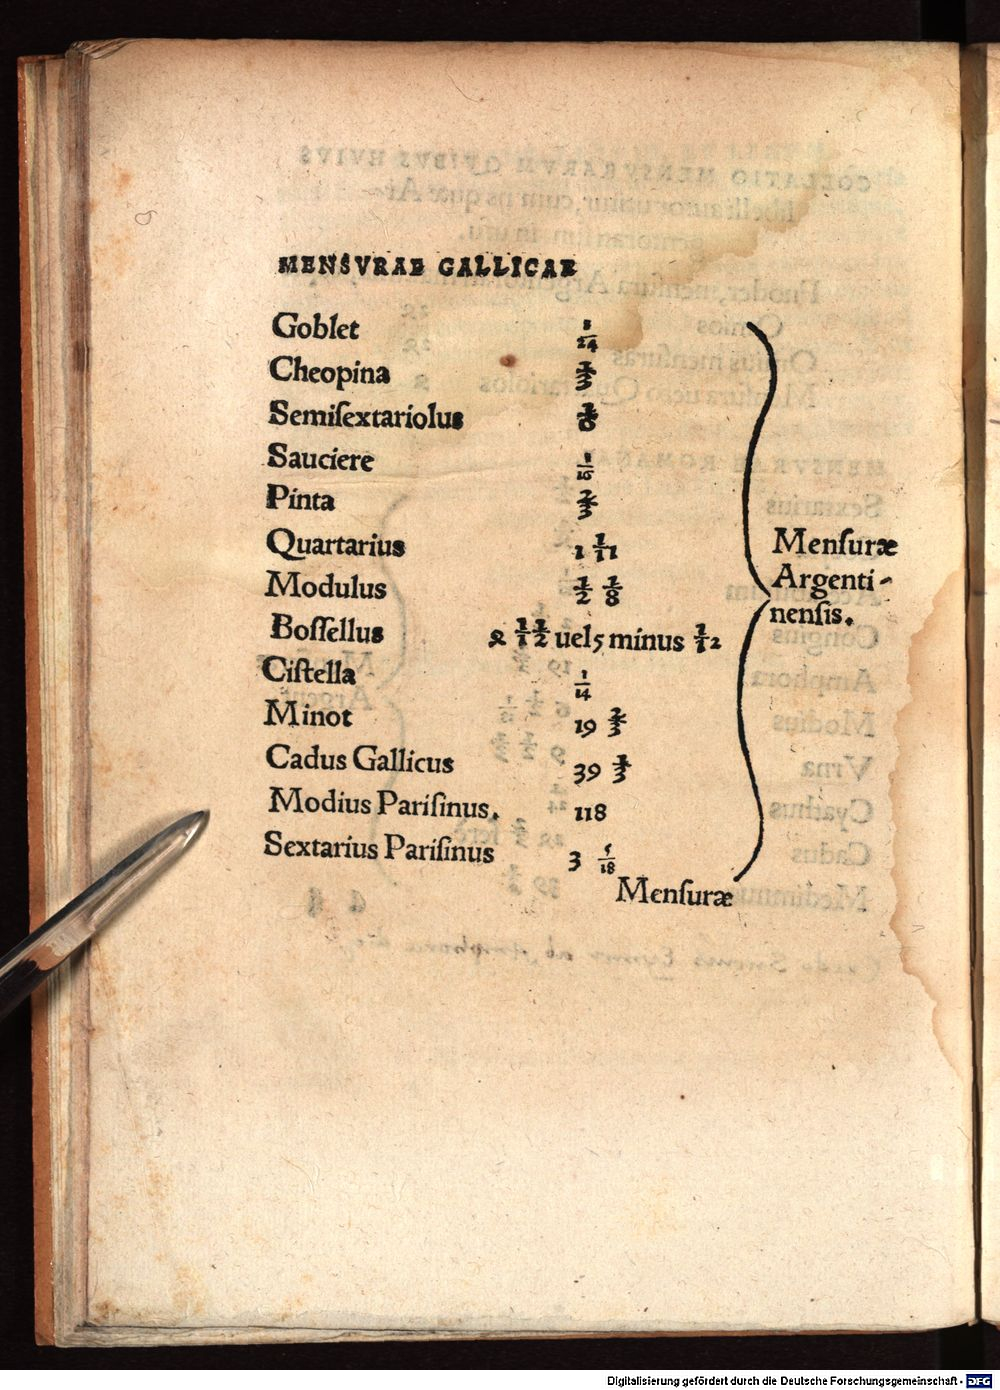 MENSVRAE GALLICAE
Goblet 1/24
Cheopina
Semiſextariolus
Sauciere
Pinta 2/3
Quartarius 1 1/11
Modulus 1/2 1/8
Boſſellus uel 5 minus 1/12
Ciſtella 1/14
Minot 19 2/3
Cadus Gallicus 39 1/3
Modius Pariſinus. 118
Sextarius Pariſinus 3 5/18
Menſuræ
Argenti-
nenſis.
Menſuræ
Digitalisierung gefördert durch die Deutsche Forschungsgemeinschaft - DFG